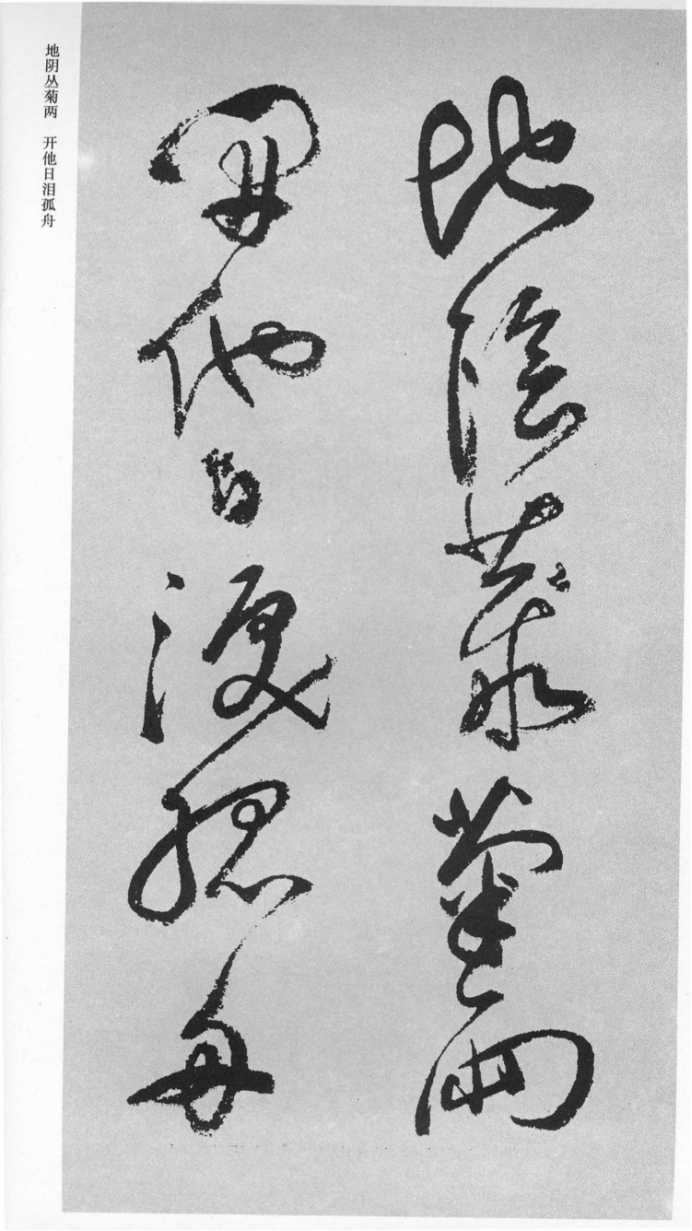 地陰藂菊兩
開他日淚孤舟
地阴丛菊两　开他日泪孤舟